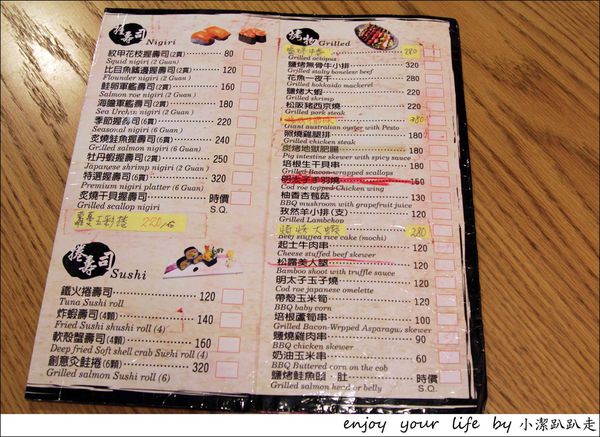 握壽司 Nigiri
紋甲花枝握壽司(2貫) 80
Squid nigiri (2 Guan)
比目魚鰭邊握壽司(2貫) 120
Flounder nigiri (2 Guan)
鮭卵軍艦壽司(2貫) 160
Salmon roe nigiri (2 Guan)
海膽軍艦壽司(2貫) 220
Sea Urchin nigiri (2 Guan)
季節握壽司(6貫) 220
Seasonal nigiri (6 Guan)
炙燒鮭魚握壽司(6貫) 250
Grilled salmon nigiri (6 Guan)
牡丹蝦握壽司(2貫) 250
Japanese shrimp nigiri (2 Guan)
特選握壽司(6貫) 320
Premium nigiri platter (6 Guan)
炙燒干貝握壽司 時價
Grilled scallop nigiri S.Q.
220/6
捲壽司 Sushi
鐵火捲壽司 120
Tuna Sushi roll
炸蝦壽司(4顆) 140
Fried Sushi shushi roll (4)
軟殼蟹壽司(4顆) 160
Deep fried Soft shell crab Sushi roll (4)
創意炙鮭捲(6顆) 320
Grilled salmon Sushi roll (6)
燒物 Grilled
280
Grilled octopus
鹽烤無骨牛小排 320
Grilled salty boneless beef
花魚一夜干 280
Grilled hokkaido mackerel
鹽烤大蝦 320
Grilled shrimp
松阪豬西京燒 220
Grilled pork steak
380
Giant australian oyster with Pesto
照燒雞腿排 180
Grilled chicken steak
炭烤地獄肥腸 180
Pig intestine skewer with spicy sauce
培根生干貝串
Grilled Bacon-wrapped scallops
明太子手羽燒 150
Cod roe topped Chicken wing
柚香杏鮑菇 120
BBQ mushroom with grapefruit juice
孜然羊小排(支) 120
Grilled Lambchop
焗烤大蝦 280
Beef stuffed rice cake (mochi)
起士牛肉串 120
Cheese stuffed beef skewer
松露美人腿 120
Bamboo shoot with truffle sauce
明太子玉子燒 120
Cod roe japanese omelette
帶殼玉米筍 120
BBQ baby corn
培根蘆筍串 120
Grilled Bacon-Wrpped Asparagus skewer
鹽燒雞肉串 90
BBQ chicken skewer
奶油玉米串 60
BBQ Buttered corn on the cob
鹽烤鮭魚頭．肚 時價
Grilled salmon head or belly S.Q.
enjoy your life by 小潔趴趴走